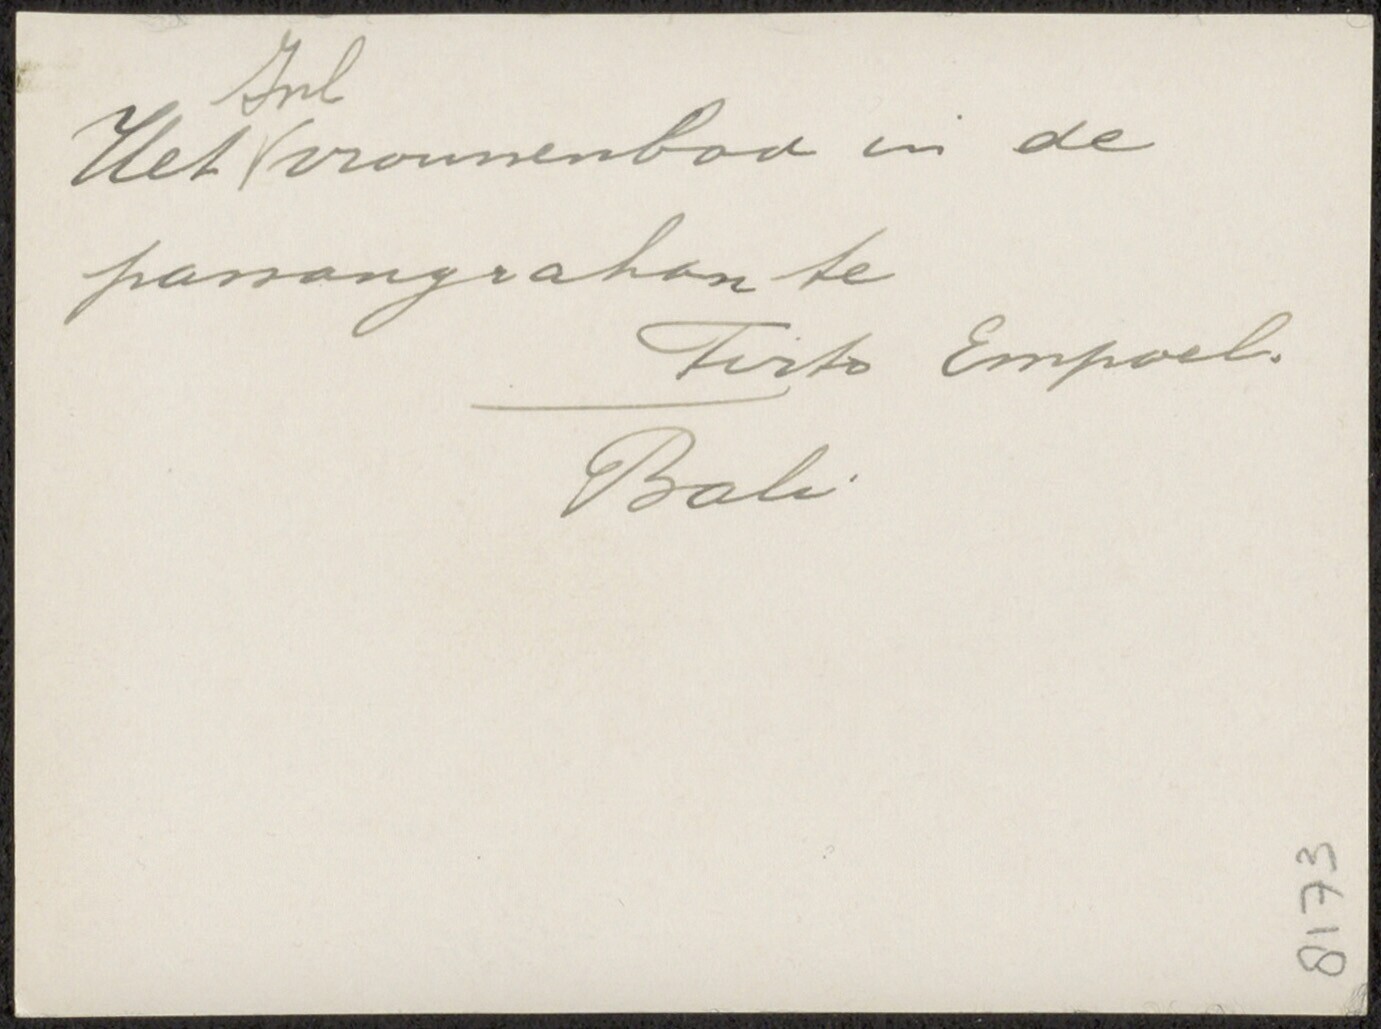 Inl
Het vrouwenbad in de
passangrahan te
Tirto Empoel.
Bali
8173